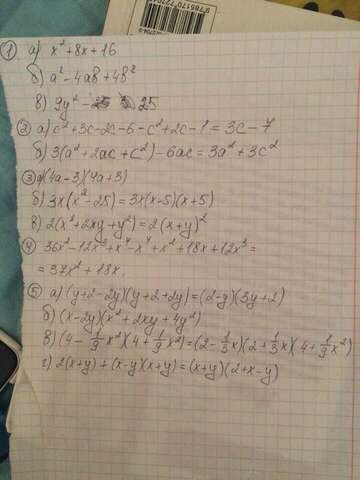 1) а) x² + 8x + 16
б) a² - 4ab + 4b²
в) 9y² - 25
2) а) c² + 3c - 2c - 6 - c² + 2c - 1 = 3c - 7
б) 3(a² + 2ac + c²) - 6ac = 3a² + 3c²
3) а) (4a - 3)(4a + 3)
б) 3x(x² - 25) = 3x(x - 5)(x + 5)
в) 2(x² + 2xy + y²) = 2(x + y)²
4) 36x² - 12x³ + x⁴ - x⁴ + x² + 18x + 12x³ =
= 37x² + 18x.
5) а) (y + 2 - 2y)(y + 2 + 2y) = (2 - y)(3y + 2)
б) (x - 2y)(x² + 2xy + 4y²)
в) (4 - 1/9 x²)(4 + 1/9 x²) = (2 - 1/3 x)(2 + 1/3 x)(4 + 1/9 x²)
г) 2(x + y) + (x - y)(x + y) = (x + y)(2 + x - y)